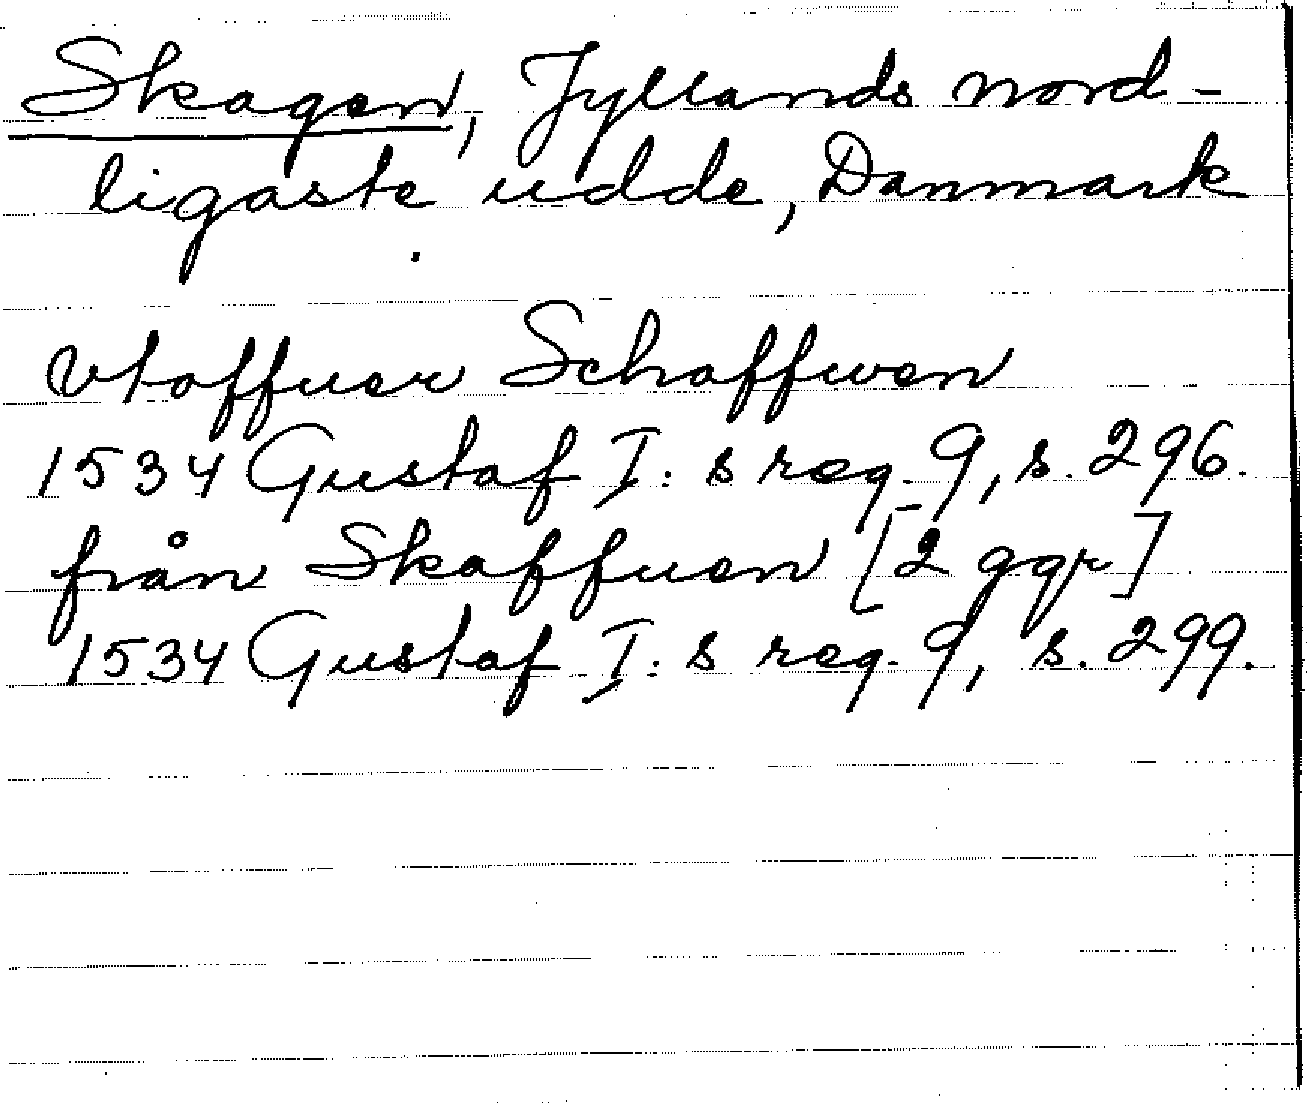 Skagen, Jyllands nord-
ligaste udde, Danmark
vtoffuer Schaffwen
1534 Gustaf I:s reg. 9, s. 296.
från Skaffuen [2 ggr]
1534 Gustaf I:s reg. 9, s. 299.